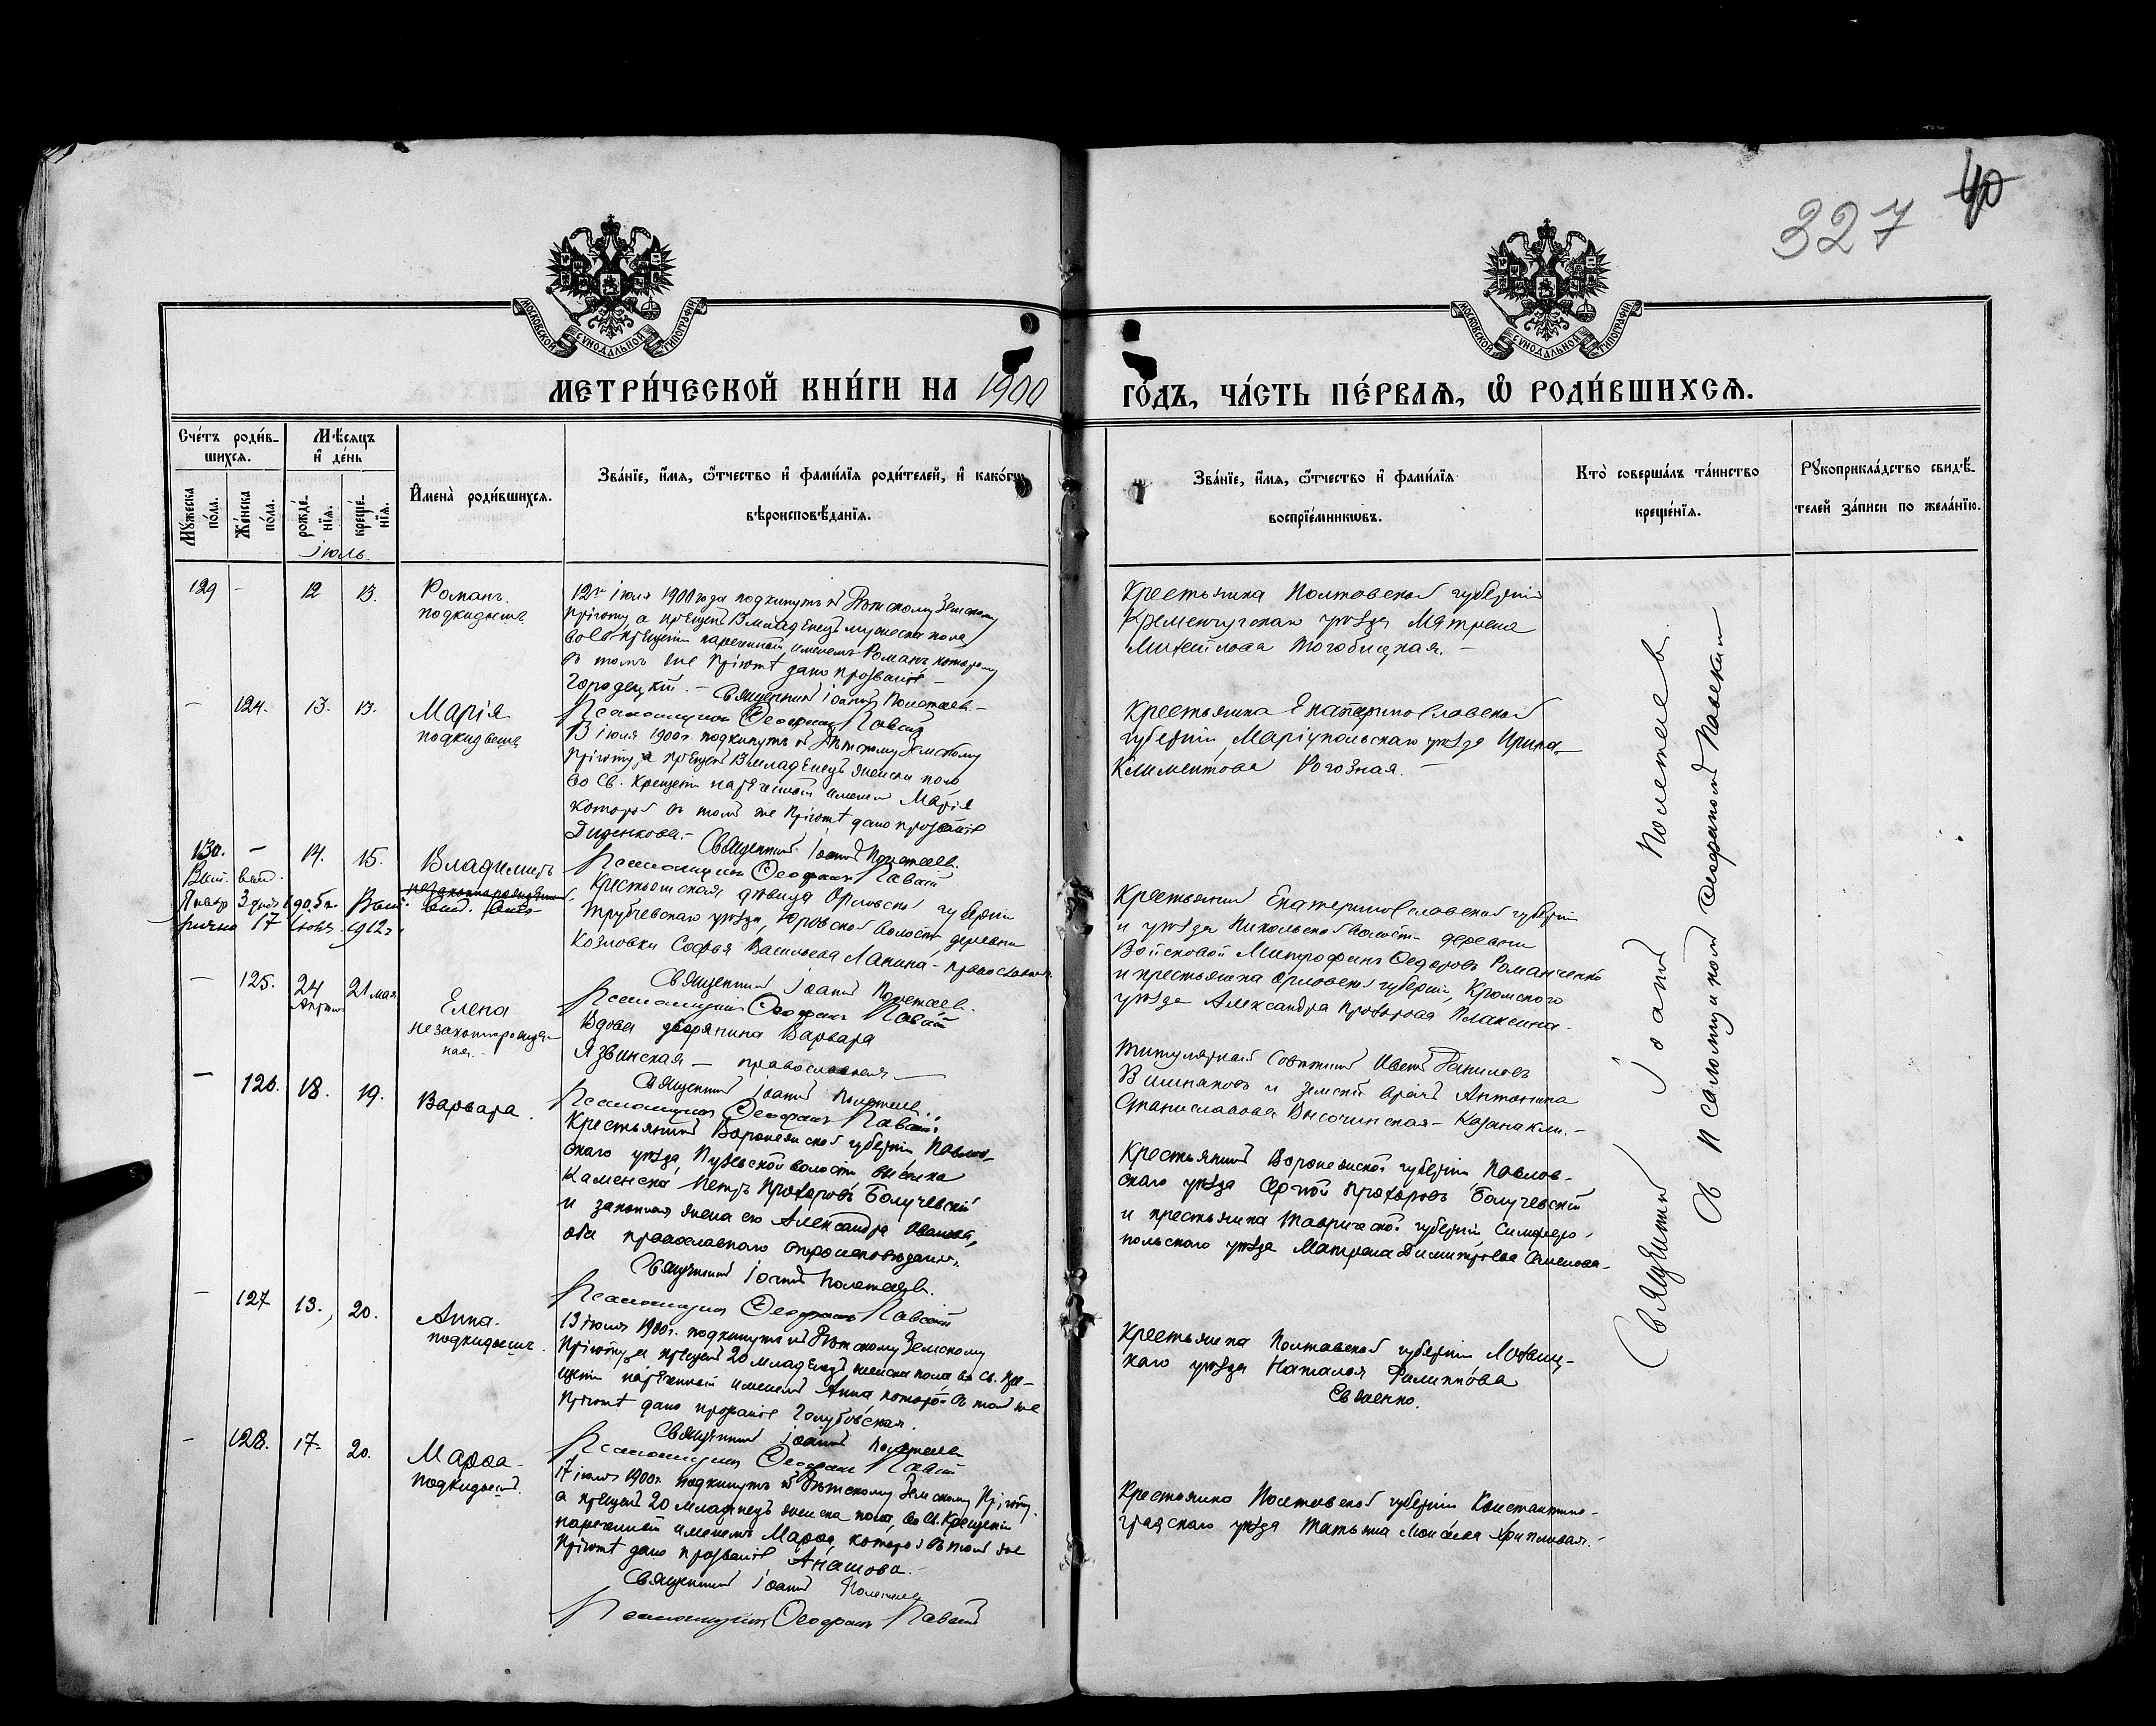 327 40
МОСКОВСКОЙ СѴНОДАЛЬНОЙ ТИПОГРАФІИ
МОСКОВСКОЙ СѴНОДАЛЬНОЙ ТИПОГРАФІИ
МЕТРИ́ЧЕСКОЙ КНИ́ГИ НА 1900 ГО́ДЪ, ЧА́СТЬ ПЕ́РВАѦ, Ѡ҆ РОДИ́ВШИХСѦ.
Сче́тъ роди́в-
шихсѧ.
Мѣ́сѧцъ
и҆ де́нь
Мꙋ́жеска
по́ла.
Же́нска
по́ла.
рожде́-
нїѧ.
креще́-
нїѧ.
Іюль.
И҆мена̀ роди́вшихсѧ.
Зва́нїе, и҆́мѧ, ѻ҆́тчество и҆ фами́лїѧ роди́телей, и҆ како́гѡ
вѣроисповѣ́данїѧ.
Зва́нїе, и҆́мѧ, ѻ҆́тчество и҆ фами́лїѧ
воспрїе́мникѡвъ.
Кто̀ соверша́лъ та́инство
креще́нїѧ.
Рꙋкоприкла́дство свидѣ́-
телей за́писи по жела́нїю.
129 - 12 13. Романъ.
подкидышъ
12го іюля 1900 года подкинутъ къ Дѣтскому Земскому
Пріюту, а крещенъ 13 младенецъ мужеска пола,
во св. крещеніи нареченный именемъ Романъ, которому
въ томъ же Пріютѣ дано прозваніе -
Городецкій. - Священникъ Іоаннъ Полетаевъ. -
Псаломщикъ Ѳеофанъ
Крестьянка Полтавской губерніи
Кременчугскаго уѣзда Матрена
Михайлова -
- 124. 13. 13. Марія
подкидышъ
13 іюля 1900 г. подкинутъ къ Дѣтскому Земскому
Пріюту, а крещенъ 13 младенецъ женска пола
во Св. Крещеніи нареченный именемъ Марія
которой въ томъ же Пріютѣ дано прозваніе
Диденкова. -
Священникъ Іоаннъ Полетаевъ.
Псаломщикъ Ѳеофанъ
Крестьянка Екатеринославской
губерніи Маріупольскаго уѣзда Ирина
Климентова Рогозная. -
130. - 14. 15. Владимиръ
незаконнорожденный
17 1912 г.
Крестьянская дѣвица Орловской губерніи
Трубчевскаго уѣзда, Юровской волости деревни
Козловки Софья Васильева Лапина - православная
Священникъ Іоаннъ Полетаевъ.
Псаломщикъ Ѳеофанъ
Крестьянинъ Екатеринославской губерніи
и уѣзда Никольской волости деревни
Войсковой Митрофанъ Ѳедоровъ Романченко
и крестьянка Орловской губерніи, Кромскаго
уѣзда Александра Прохорова Плаксина. -
- 125. 24 21 мая
Елена
незаконнорожден-
ная. -
Вдова дворянина Варвара
Язвинская - православная -
Священникъ Іоаннъ Полетаевъ.
Псаломщикъ Ѳеофанъ
Титулярный Совѣтникъ Иванъ Даниловъ
и Земскій врачъ Антонина
Станиславова Высочинская - -
- 126. 18. 19. Варвара.
Крестьянинъ Воронежской губерніи, Павлов-
скаго уѣзда, волости
Каменска Петръ Прохоровъ Болучевскій
и законная жена его Александра Иванова,
оба православнаго вѣроисповѣданія.
Священникъ Іоаннъ Полетаевъ.
Псаломщикъ Ѳеофанъ
Крестьянинъ Воронежской губерніи Павлов-
скаго уѣзда Сергѣй Прохоровъ Болучевскій
и крестьянка Таврической губерніи Симферо-
польскаго уѣзда Матрена Димитріева
- 127 13. 20. Анна.
подкидышъ.
13 іюля 1900 г. подкинутъ къ Дѣтскому Земскому
Пріюту, а крещенъ 20 младенецъ женска пола во Св. Кре-
щеніи нареченный именемъ Анна, которой въ томъ же
Пріютѣ дано прозваніе Голубовская.
Священникъ Іоаннъ Полетаевъ
Псаломщикъ Ѳеофанъ
Крестьянка Полтавской губерніи Лохвиц-
каго уѣзда Наталья Филиппова
Евженко.
- 128. 17. 20. Марѳа.
подкидышъ.
17 іюля 1900 г. подкинутъ къ Дѣтскому Земскому Пріюту,
а крещенъ 20 младенецъ женска пола, во Св. Крещеніи
нареченный именемъ Марѳа, которой въ томъ же
Пріютѣ дано прозваніе Анашова. -
Священникъ Іоаннъ Полетаевъ
Псаломщикъ Ѳеофанъ
Крестьянка Полтавской губерніи Константино-
градскаго уѣзда Татьяна Моисѣева Хрипливая. -
Священникъ Іоаннъ Полетаевъ.
Съ псаломщикомъ Ѳеофаномъ